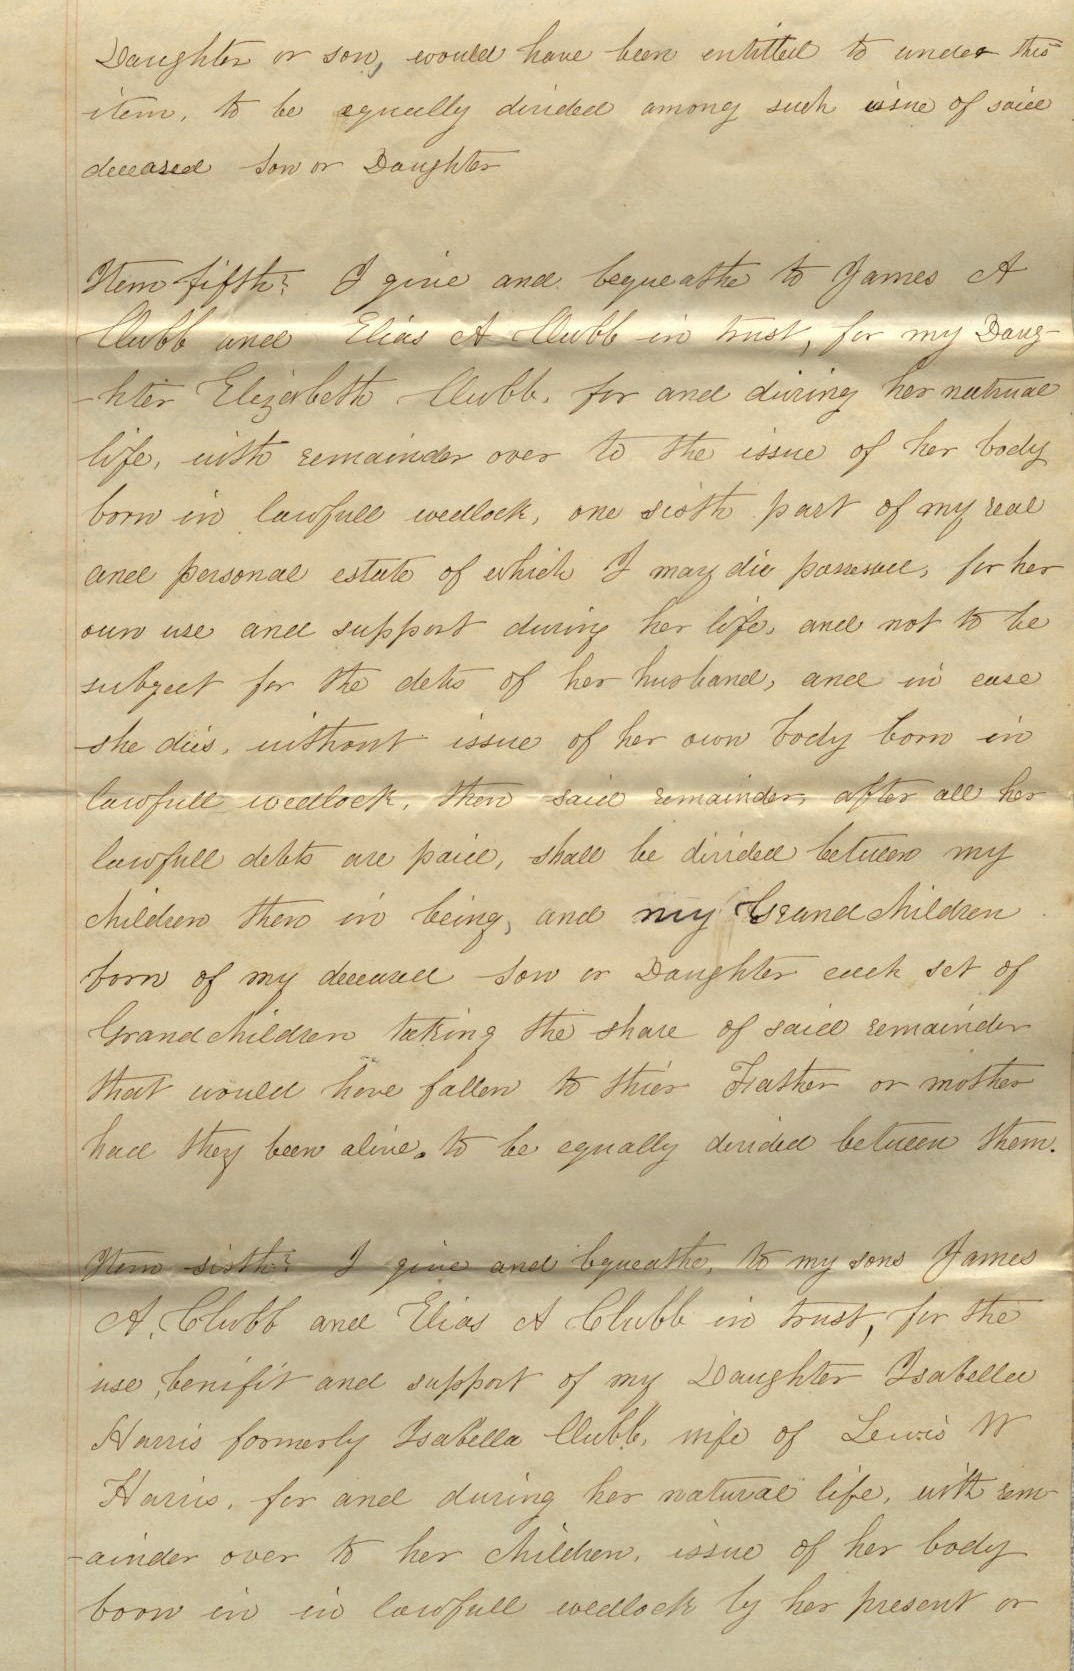 Daughter or son, would have been entitled to under this
item, to be equally divided among such issue of said
deceased son or Daughter
Item fifth: I give and bequeathe to James A
Clubb and Elias A Clubb in trust, for my Daug-
-hter Elizabeth Clubb, for and during her natural
life, with remainder over to the issue of her body
born in lawfull wedlock, one sixth part of my real
and personal estate of which I may die possessed, for her
own use and support during her life, and not to be
subject for the debts of her husband, and in case
she dies, without issue of her own body born in
lawfull wedlock, then said remainder, after all her
lawfull debts are paid, shall be divided between my
children then in being, and my Grandchildren
born of my deceased son or Daughter each set of
Grandchildren taking the share of said remainder
that would have fallen to thier Father or mother
had they been alive. to be equally divided between them.
Item sixth: I give and bequeathe, to my sons James
A. Clubb and Elias A Clubb in trust, for the
use, benifit and support of my Daughter Isabella
Harris formerly Isabella Clubb, wife of Lewis W
Harris, for and during her natural life, with rem-
-ainder over to her children, issue of her body
born in in lawfull wedlock by her present or